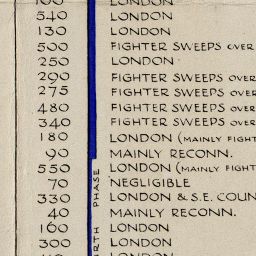 100 LONDON
540 LONDON
130 LONDON
500 FIGHTER SWEEPS OVER
250 LONDON
290 FIGHTER SWEEPS OVER
275 FIGHTER SWEEPS OVER
480 FIGHTER SWEEPS OVER
340 FIGHTER SWEEPS OVER
180 LONDON (MAINLY FIGHT
90 MAINLY RECONN.
550 LONDON (MAINLY FIGHT
70 NEGLIGIBLE
330 LONDON & S.E. COUN
40 MAINLY RECONN.
160 LONDON
300 LONDON
LONDON
RTH PHASE